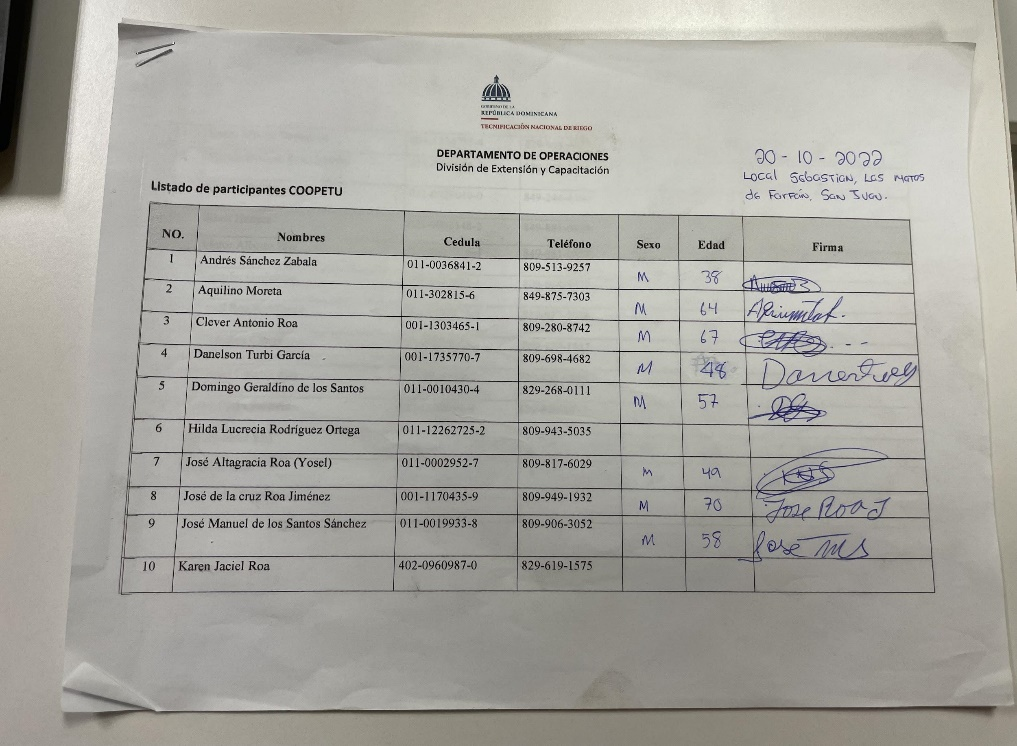 GOBIERNO DE LA
REPÚBLICA DOMINICANA
TECNIFICACIÓN NACIONAL DE RIEGO
DEPARTAMENTO DE OPERACIONES
División de Extensión y Capacitación
20-10-2022
Local Sebastian, Las Matas
de Farfán, San Juan.
Listado de participantes COOPETU
NO. Nombres Cedula Teléfono Sexo Edad Firma
1 Andrés Sánchez Zabala 011-0036841-2 809-513-9257 M 38
2 Aquilino Moreta 011-302815-6 849-875-7303 M 64
3 Clever Antonio Roa 001-1303465-1 809-280-8742 M 67
4 Danelson Turbi García 001-1735770-7 809-698-4682 M 48
5 Domingo Geraldino de los Santos 011-0010430-4 829-268-0111 M 57
6 Hilda Lucrecia Rodríguez Ortega 011-12262725-2 809-943-5035
7 José Altagracia Roa (Yosel) 011-0002952-7 809-817-6029 M 49
8 José de la cruz Roa Jiménez 001-1170435-9 809-949-1932 M 70 Jose Roa J
9 José Manuel de los Santos Sánchez 011-0019933-8 809-906-3052 M 58 José MS
10 Karen Jaciel Roa 402-0960987-0 829-619-1575